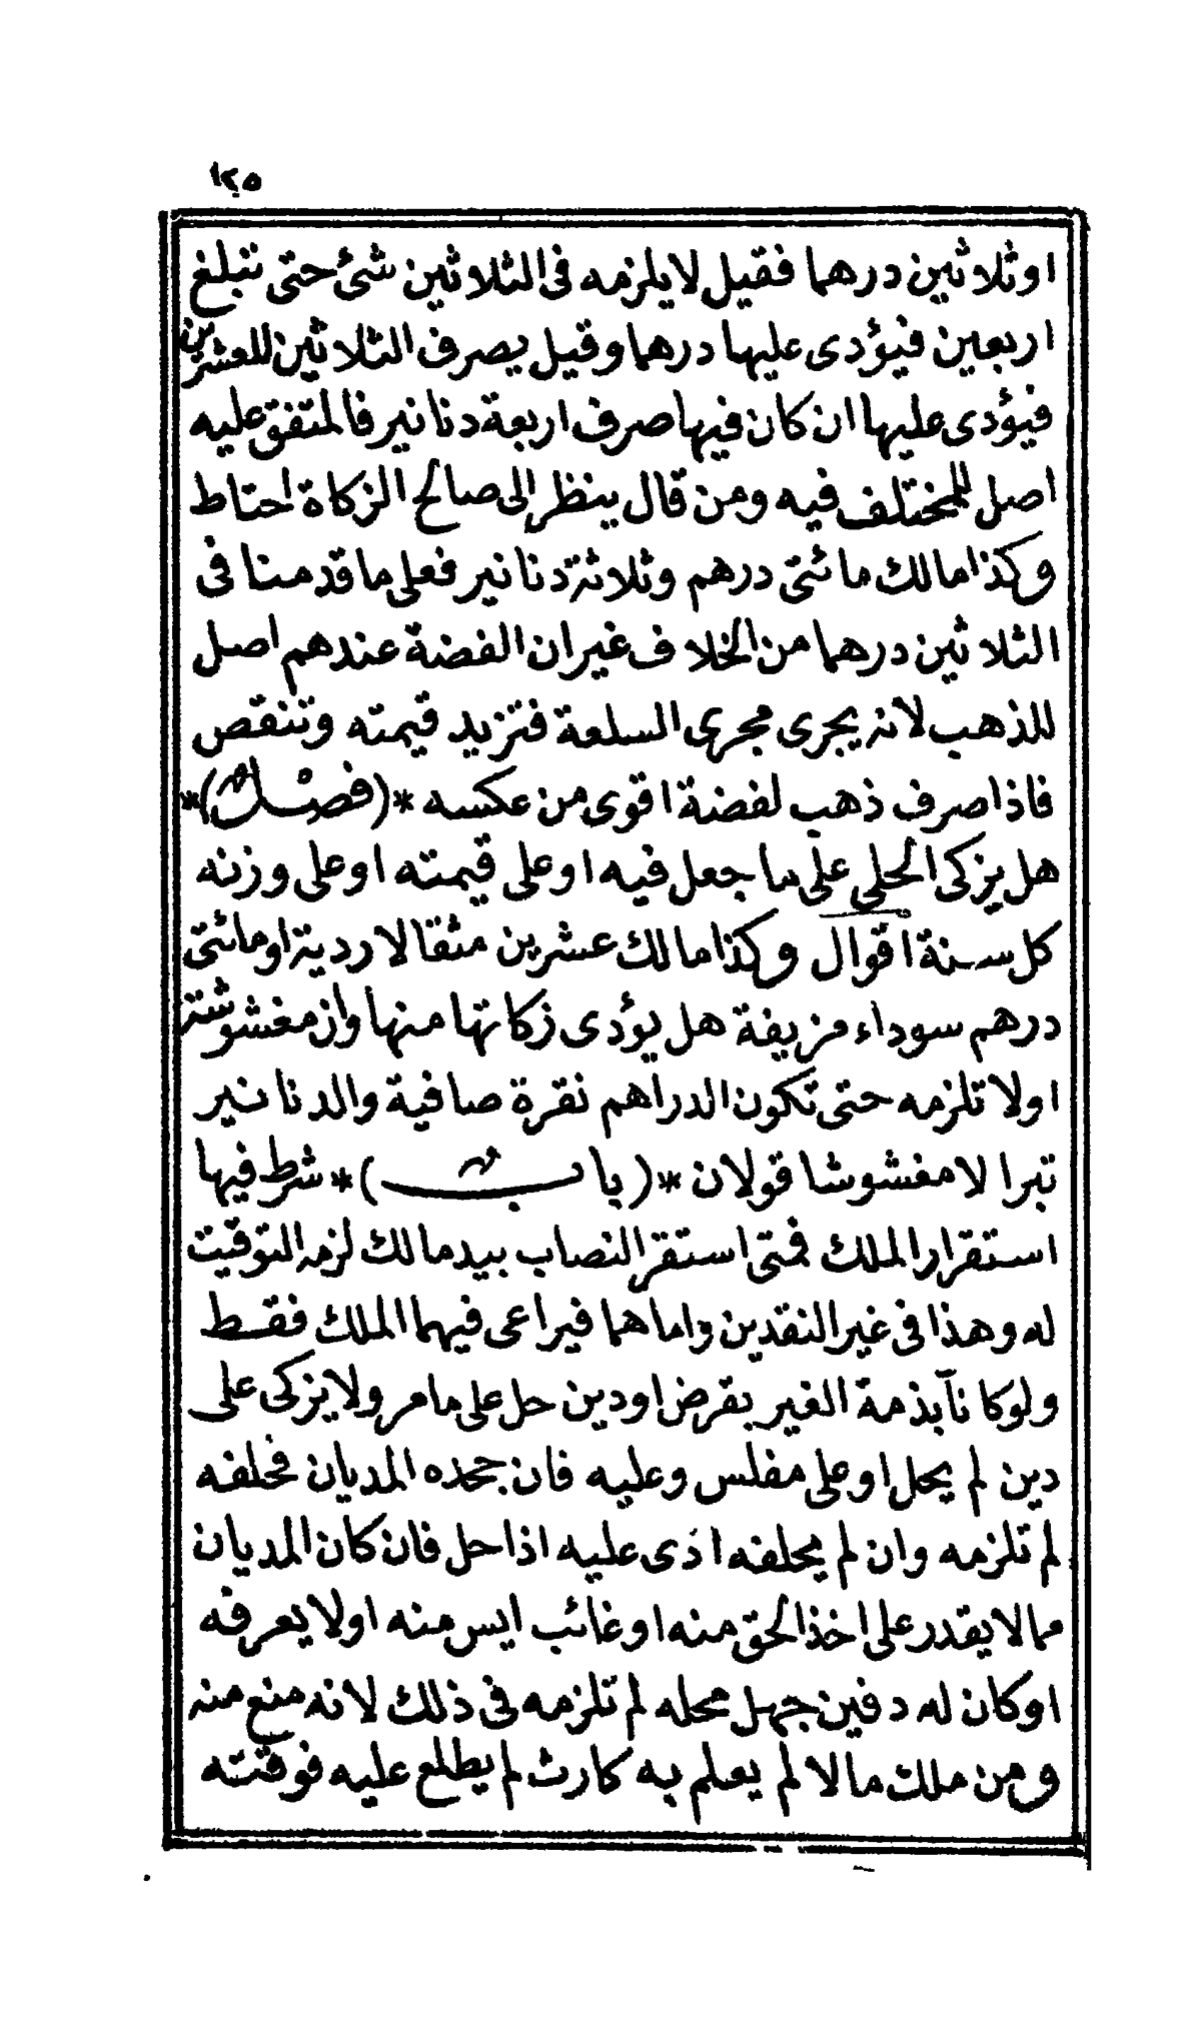 ١٢٥
او ثلاثين درهما فقيل لا يلزمه فى الثلاثين شئ حتى تبلغ
اربعين فيؤدى عليها درهما وقيل يصرف الثلاثين للعشرين
فيؤدى عليها ان كان فيها صرف اربعة دنانير فالمتفق عليه
اصل للمختلف فيه ومن قال ينظر الى صالح الزكاة احتاط
وكذا مالك مائتى درهم وثلاثة دنانير فعلى ما قدمنا فى
الثلاثين درهما من الخلاف غير ان الفضة عندهم اصل
للذهب لانه يجرى مجرى السلعة فتزيد قيمته وتنقص
فاذا صرف ذهب لفضة اقوى من عكسه *(فصل)*
هل يزكى الحلى على ما جعل فيه او على قيمته او على وزنه
كل سنة اقوال وكذا مالك عشرين مثقالا ردية او مائتى
درهم سوداء مزيفة هل يؤدى زكاتها منها وان مغشوشة
اولا تلزمه حتى تكون الدراهم نقرة صافية والدنانير
تبرا لا مغشوشا قولان *(باب)* شرط فيها
استقرار الملك فمتى استقر النصاب بيد مالك لزمه التوقيت
له وهذا فى غير النقدين واما هما فيراعى فيهما الملك فقط
ولو كانآ بذمة الغير بقرض او دين حل على ما مر ولا يزكى على
دين لم يحل او على مفلس وعليه فان جحده المديان فحلفه
لم تلزمه وان لم يحلفه ادى عليه اذا حل فان كان المديان
مما لا يقدر على اخذ الحق منه او غائب ايس منه او لا يعرفه
او كان له دفين جهل محله لم تلزمه فى ذلك لانه منع منه
ومن ملك مالا لم يعلم به كارث لم يطلع عليه فوقته